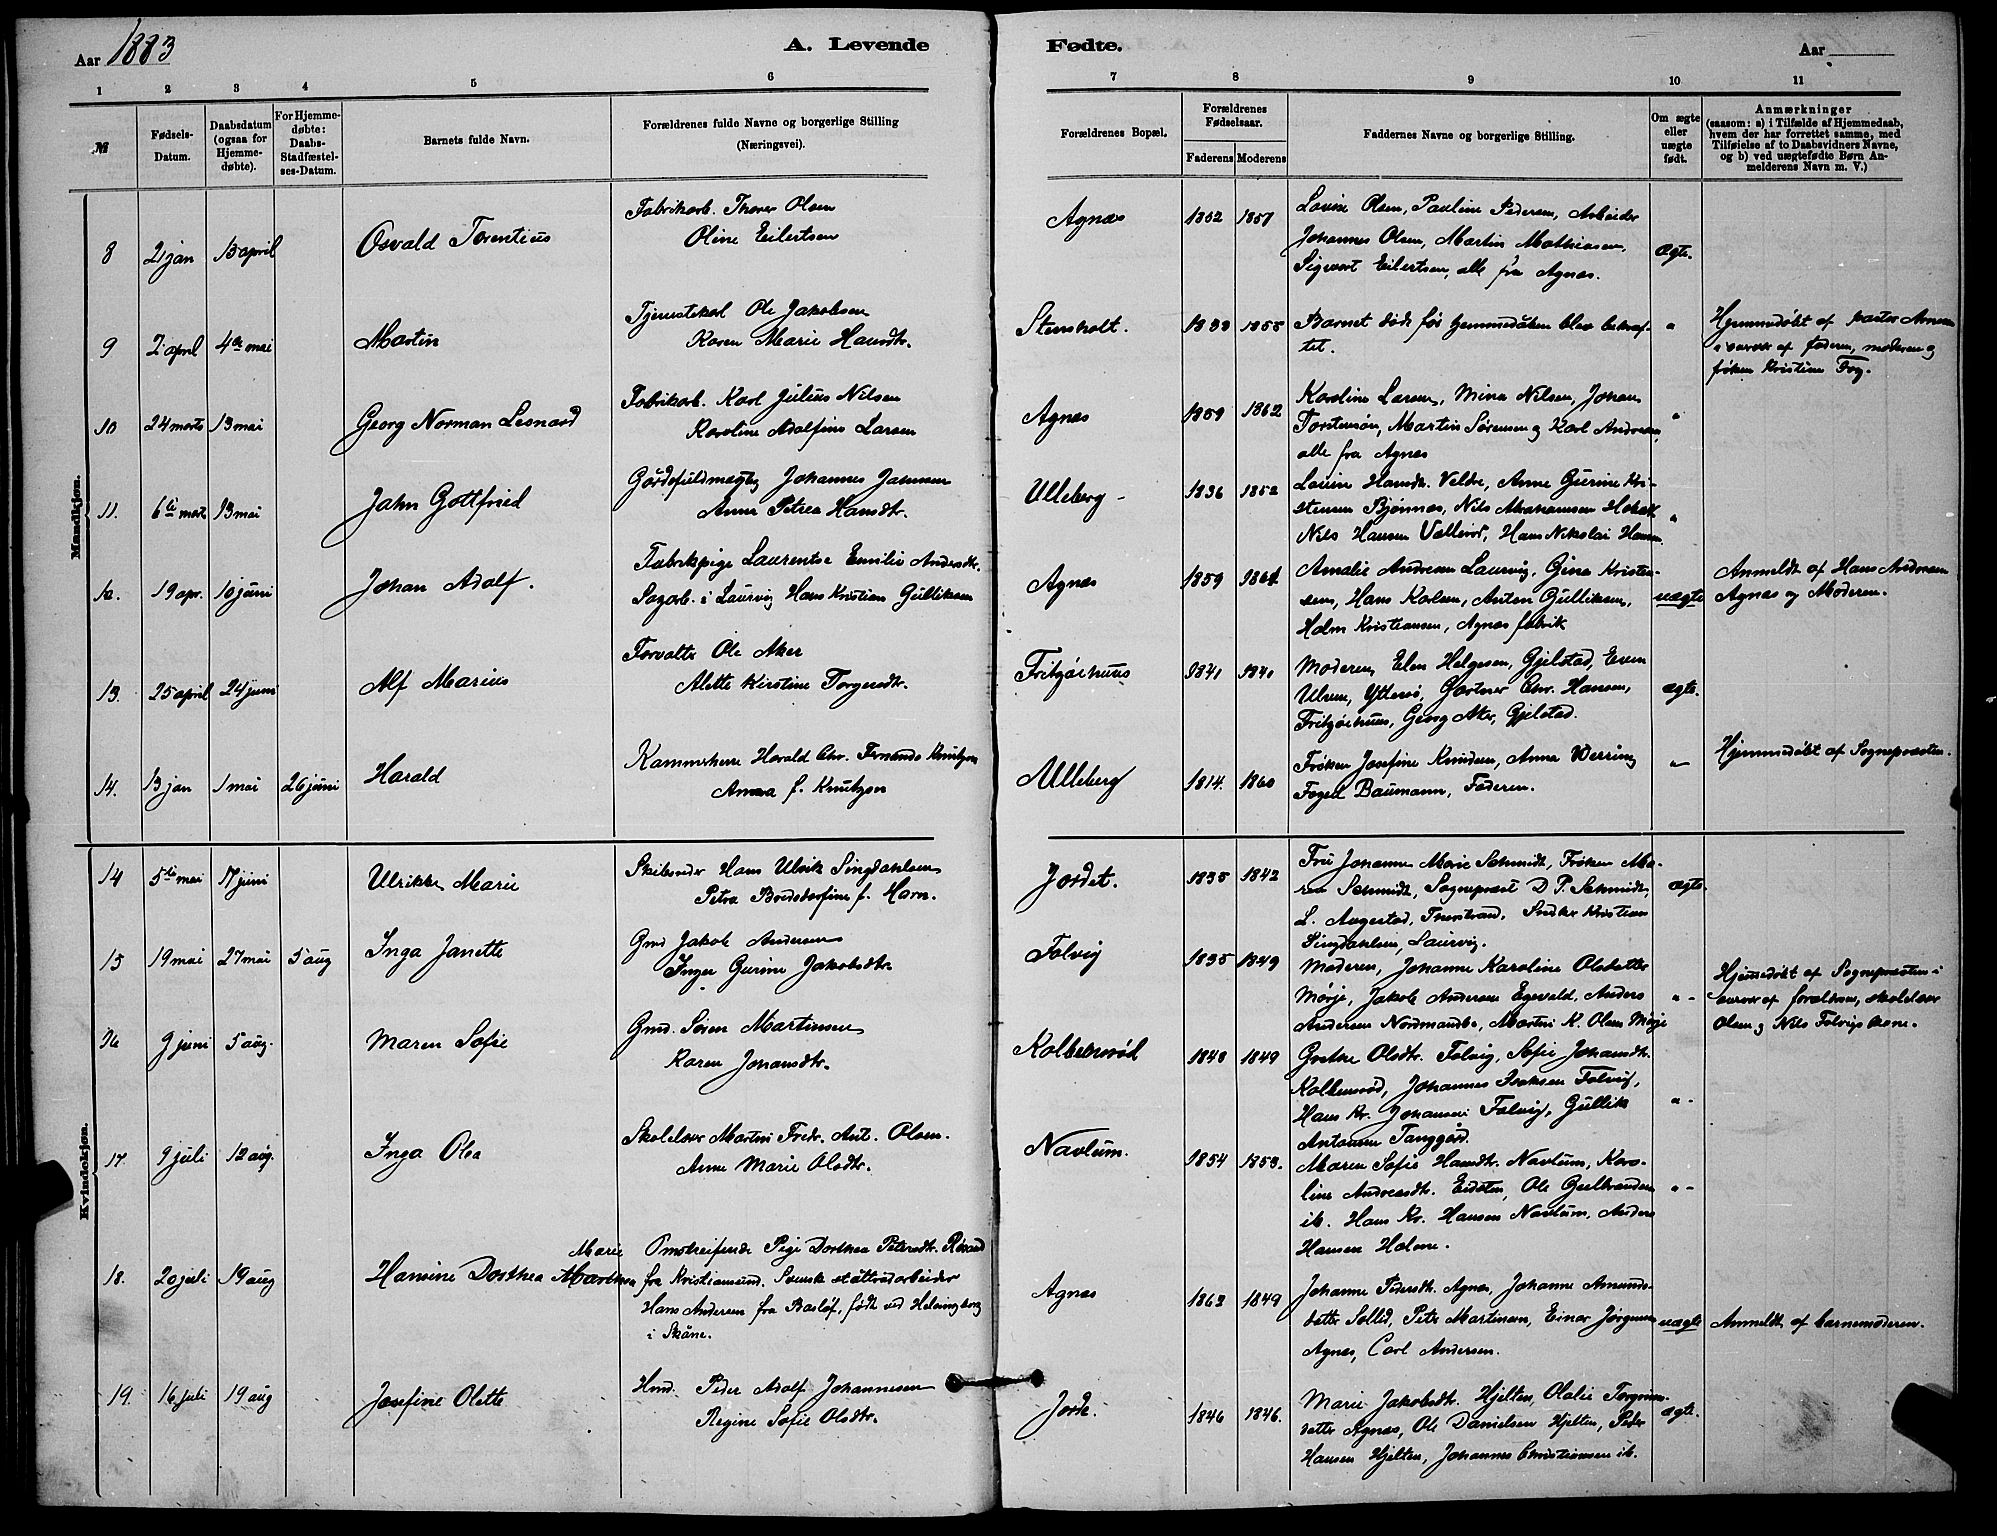 Aar 1883
A. Levende
Fødte.
Aar
1 2 3 4 5 6 7 8 9 10 11
№
Fødsels-
Datum.
Daabsdatum
(ogsaa for
Hjemme-
døbte).
For Hjemme-
døbte:
Daabs-
Stadfæstel-
ses-Datum.
Barnets fulde Navn.
Forældrenes fulde Navne og borgerlige Stilling
(Næringsvei).
Forældrenes Bopæl.
Forældrenes
Fødselsaar.
Faderens Moderens
Faddernes Navne og borgerlige Stilling.
Om ægte
eller
uægte
født.
Anmærkninger
(saasom: a) i Tilfælde af Hjemmedaab,
hvem der har forrettet samme, med
Tilføielse af to Daabsvidners Navne,
og b) ved uægtefødte Børn An-
melderens Navn m. V.)
Mandkjøn.
8 21 jan 13 april Osvald Torentius
Fabrikarb. Thorer Olsen
Oline Eilertsen
Agnæs 1852 1857
Lovise Olsen, Pauline Pedersen, Arbeider
Johannes Olsen, Martin Mathiasen,
Sigvart Eilertsen, alle fra Agnæs.
ægte.
9 2 april 4de mai Martin
Tjenestekarl Ole Jakobsen
Karen Marie Hansdtr.
Stensholt. 1855
Barnet døde før hjemmedåben blev bekræf-
tet.
"
Hjemmedøbt af pastor
i nærvær af faderen, moderen og
frøken Kristine Fog.
10 24 marts 13 mai Georg Norman Leonard
Fabrikarb. Karl Julius Nilsen
Karoline Adolfine Larsen
Agnæs 1859 1862
Karoline Larsen, Mina Nilsen, Johan
Torstensøn, Martin Sørensen og Karl Andresen,
alle fra Agnæs
"
11. 6te mart 13 mai Jahn Gottfried
Gårdsfuldmægtig Johannes Jansen
Anne Petrea Hansdtr.
Ulleberg - 1836 1852
Lovise Hansdtr. Veldre, Anne Gurine Kri-
stensen Bjønnes, Nils Abrahamsen
Nils Hansen Vallerød, Hans Nikolai Hansen
"
19 apr. 10 juni Johan Adolf.
Fabrikpige Laurentse Emilie Andersdtr.
Sagarb. i Laurvig Hans Kristian Gulliksen
Agnæs 1859 1861
Amalie Andresen Laurvig, Gina Kristen-
sen, Hans Karlsen, Anton Gulliksen,
Holm Kristiansen, Agnæs fabrik
uægte
Anmeldt af Hans Andresen
Agnæs og Moderen.
13. 25 april 24 juni Alf Marius
Forvalter Ole Aker
Alette Kirstine Torgersdtr.
Fritzøehuus 1841 1840
Moderen, Elen Helgesen, Gjelstad, Even
Ulsen, Ytterø, Gartner Chr. Hansen,
Fritzøehuus, Georg Aker, Gjelstad.
ægte.
14. 13 jan 1 mai 26 juni Harald
Kammerherre Harald Chr. Fernando Knutzon
Anna f. Knutzon
Ulleberg 1814. 1860
Frøken Josefine Knudsen, Anna Werring
Foged Baumann, Faderen.
"
Hjemmedøbt af Sognepræsten.
Kvindekjøn.
14 5te mai 17 juni Ulrikke Marie
Skibsreder Hans Ulrik Singdahlsen
Petra Bredsdorfine f. Horn.
Jordet. 1835 1842
Fru Johanne Marie Schmidt, Frøken Ma-
ren Schmidt, Sognepræst D. P. Schmidt,
L. Augestad, Snedker Kristian
Singdahlsen, Laurvig.
ægte.
15 19 mai 27 mai 5 aug Inga Janette
Gmd Jakob Andersen
Inger Gurine Jakobsdtr.
Folvig 1835 1849
Moderen, Johanne Karoline Olsdatter
Mørje, Jakob Andersen Egevald, Anders
Andersen Nordmandbæ, Martin K. Olsen Mørje
"-
Hjemmedøbt af Sognepræsten i
nærvær af forældrene, skolelærer
Olsen og Nils Folvigs kone.
16 9 juni 5 aug. Maren Sofie
Gmd. Søren Martinsen
Karen Johansdtr.
Kolbensrød 1848 1849
Grethe Olsdtr. Folvig, Sofie Johansdtr.
Kolbensrød, Johannes Isaksen Folvig,
Hans Kr. Johansen Folvig, Gullik
Antonsen Tanggård.
"-
17. 9 juli 12 aug. Inga Olea
Skolelærer Martin Fredr. Ant. Olsen.
Anne Marie Olsdtr.
Navlum. 1854 1853.
Maren Sofie Hansdtr. Navlum, Karo-
line Andreasdtr. Eidsten, Ole Gulbrandsen
ib. Hans Kr. Hansen Navlum, Anders
Hansen Holme.
"-
18. 20 juli 19 aug Hansine Dorthea Marie Marthea
Omstreifende Pige Dorthea Petersdtr.
fra Kristiansund. Svensk arbeider
Hans Andersen fra Basløf, født ved Helsingborg
i Skåne.
Agnæs 1863 1849
Johanne Pedersdtr. Agnæs, Johanne Amunds-
datter Sollid, Peter Martinsen, Einar Jørgensen
Agnæs, Carl Andersen.
uægte
Anmeldt af barnemoderen.
19. 16 juli 19 aug Josefine Olette
Hmd. Peder Adolf Johannesen
Regine Sofie Olsdtr.
Jorde. 1846 1846.
Marie Jakobsdt. Hjelten, Olalie Torgrims-
datter Agnæs, Ole Danielsen Hjelten, Peder
Hansen Hjelten, Johannes Christiansen ib.
ægte.